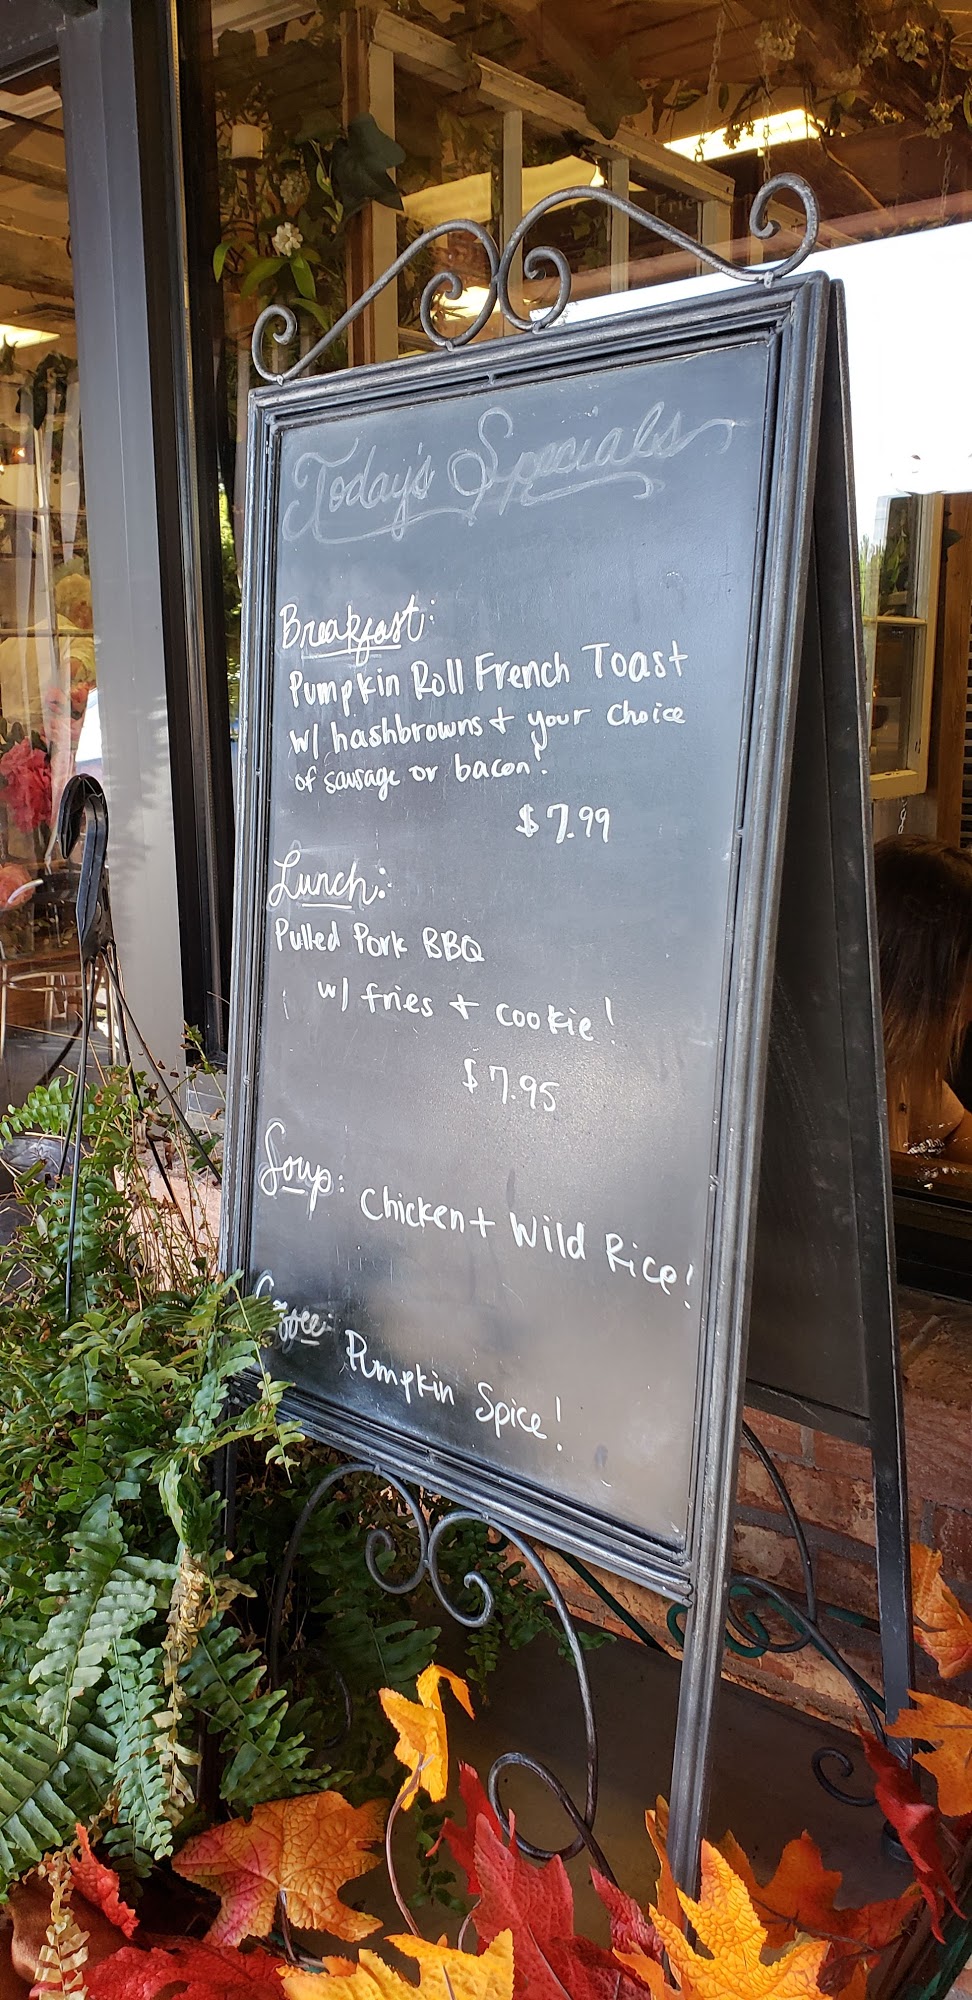 Today's Specials
Breakfast:
Pumpkin Roll French Toast
w/ hashbrowns + your choice
of sausage or bacon!
$7.99
Lunch:
Pulled Pork BBQ
w/ fries + cookie!
$7.95
Soup: Chicken + Wild Rice!
Coffee: Pumpkin Spice!